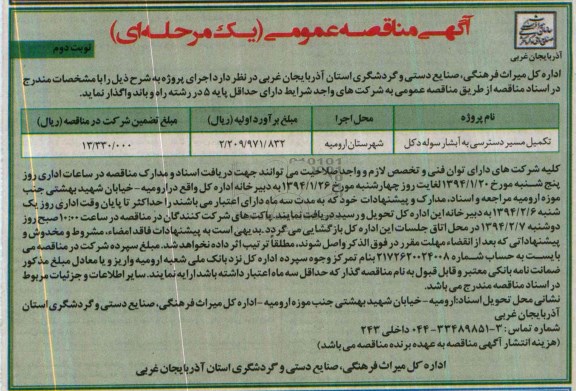 آگهی مناقصه عمومی (یک مرحله‌ای)
نوبت دوم
آذربایجان غربی
اداره کل میراث فرهنگی، صنایع دستی و گردشگری استان آذربایجان غربی در نظر دارد اجرای پروژه به شرح ذیل را با مشخصات مندرج
در اسناد مناقصه از طریق مناقصه عمومی به شرکت های واجد شرایط دارای حداقل پایه ۵ در رشته راه و باند واگذار نماید.
نام پروژه محل اجرا مبلغ برآورد اولیه (ریال) مبلغ تضمین شرکت در مناقصه (ریال)
تکمیل مسیر دسترسی به آبشار سوله دکل شهرستان ارومیه ۲/۲۰۹/۹۷۱/۸۳۲ ۱۳/۳۳۰/۰۰۰
کلیه شرکت های دارای توان فنی و تخصص لازم و واجد صلاحیت می توانند جهت دریافت اسناد و مدارک مناقصه در ساعات اداری روز
پنج شنبه مورخ ۱۳۹۴/۱/۲۰ لغایت روز چهارشنبه مورخ ۱۳۹۴/۱/۲۶ به دبیرخانه این اداره کل واقع در ارومیه - خیابان شهید بهشتی جنب
موزه ارومیه مراجعه و اسناد، مدارک و پیشنهادات خود که به مدت سه ماه دارای اعتبار می باشند را حداکثر تا پایان وقت اداری روز یک
شنبه ۱۳۹۴/۲/۶ به دبیرخانه این اداره کل تحویل و رسید دریافت نمایند. پاکت های شرکت کنندگان در مناقصه در ساعت ۱۰:۰۰ صبح روز
دوشنبه ۱۳۹۴/۲/۷ در محل اتاق جلسات این اداره کل بازگشایی می گردد. بدیهی است به پیشنهادات فاقد امضاء، مشروط و مخدوش و
پیشنهاداتی که بعد از انقضاء مهلت مقرر در فوق الذکر واصل شوند، مطلقاً ترتیب اثر داده نخواهد شد. مبلغ سپرده شرکت در مناقصه می
بایست به حساب شماره ۲۱۷۲۶۲۰۰۲۴۰۰۸ بنام تمرکز وجوه سپرده اداره کل نزد بانک ملی شعبه ارومیه واریز و یا معادل مبلغ مذکور
ضمانت نامه بانکی معتبر و قابل قبول به نام مناقصه گذار که حداقل سه ماه اعتبار داشته باشد ارایه نمایند. سایر اطلاعات و جزئیات مربوط
در اسناد مناقصه مندرج می باشد.
نشانی محل تحویل اسناد: ارومیه - خیابان شهید بهشتی جنب موزه ارومیه - اداره کل میراث فرهنگی، صنایع دستی و گردشگری استان
آذربایجان غربی
شماره تماس: ۳-۳۳۴۸۹۸۵۱-۰۴۴ داخلی ۲۴۳
(هزینه انتشار آگهی مناقصه به عهده برنده مناقصه می باشد)
اداره کل میراث فرهنگی، صنایع دستی و گردشگری استان آذربایجان غربی